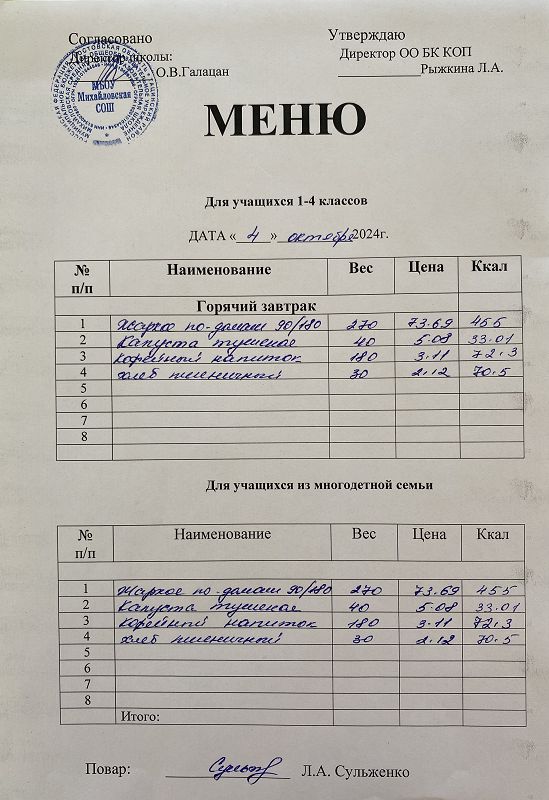 Согласовано Утверждаю
Директор школы: Директор ОО БК КОП
О.В.Галацан ____________Рыжкина Л.А.
МБОУ
Михайловская
СОШ
МЕНЮ
Для учащихся 1-4 классов
ДАТА «_4_»_октября 2024г.
№ п/п Наименование Вес Цена Ккал
Горячий завтрак
1 Жаркое по-домаш 90/180 270 73.69 455
2 Капуста тушеная 40 5.08 33.01
3 Кофейный напиток 180 3.11 72.3
4 хлеб пшеничный 30 2.12 70.5
5
6
7
8
Для учащихся из многодетной семьи
№ п/п Наименование Вес Цена Ккал
1 Жаркое по-домаш 90/180 270 73.69 455
2 Капуста тушеная 40 5.08 33.01
3 Кофейный напиток 180 3.11 72.3
4 хлеб пшеничный 30 2.12 70.5
5
6
7
8
Итого:
Повар: Л.А. Сульженко